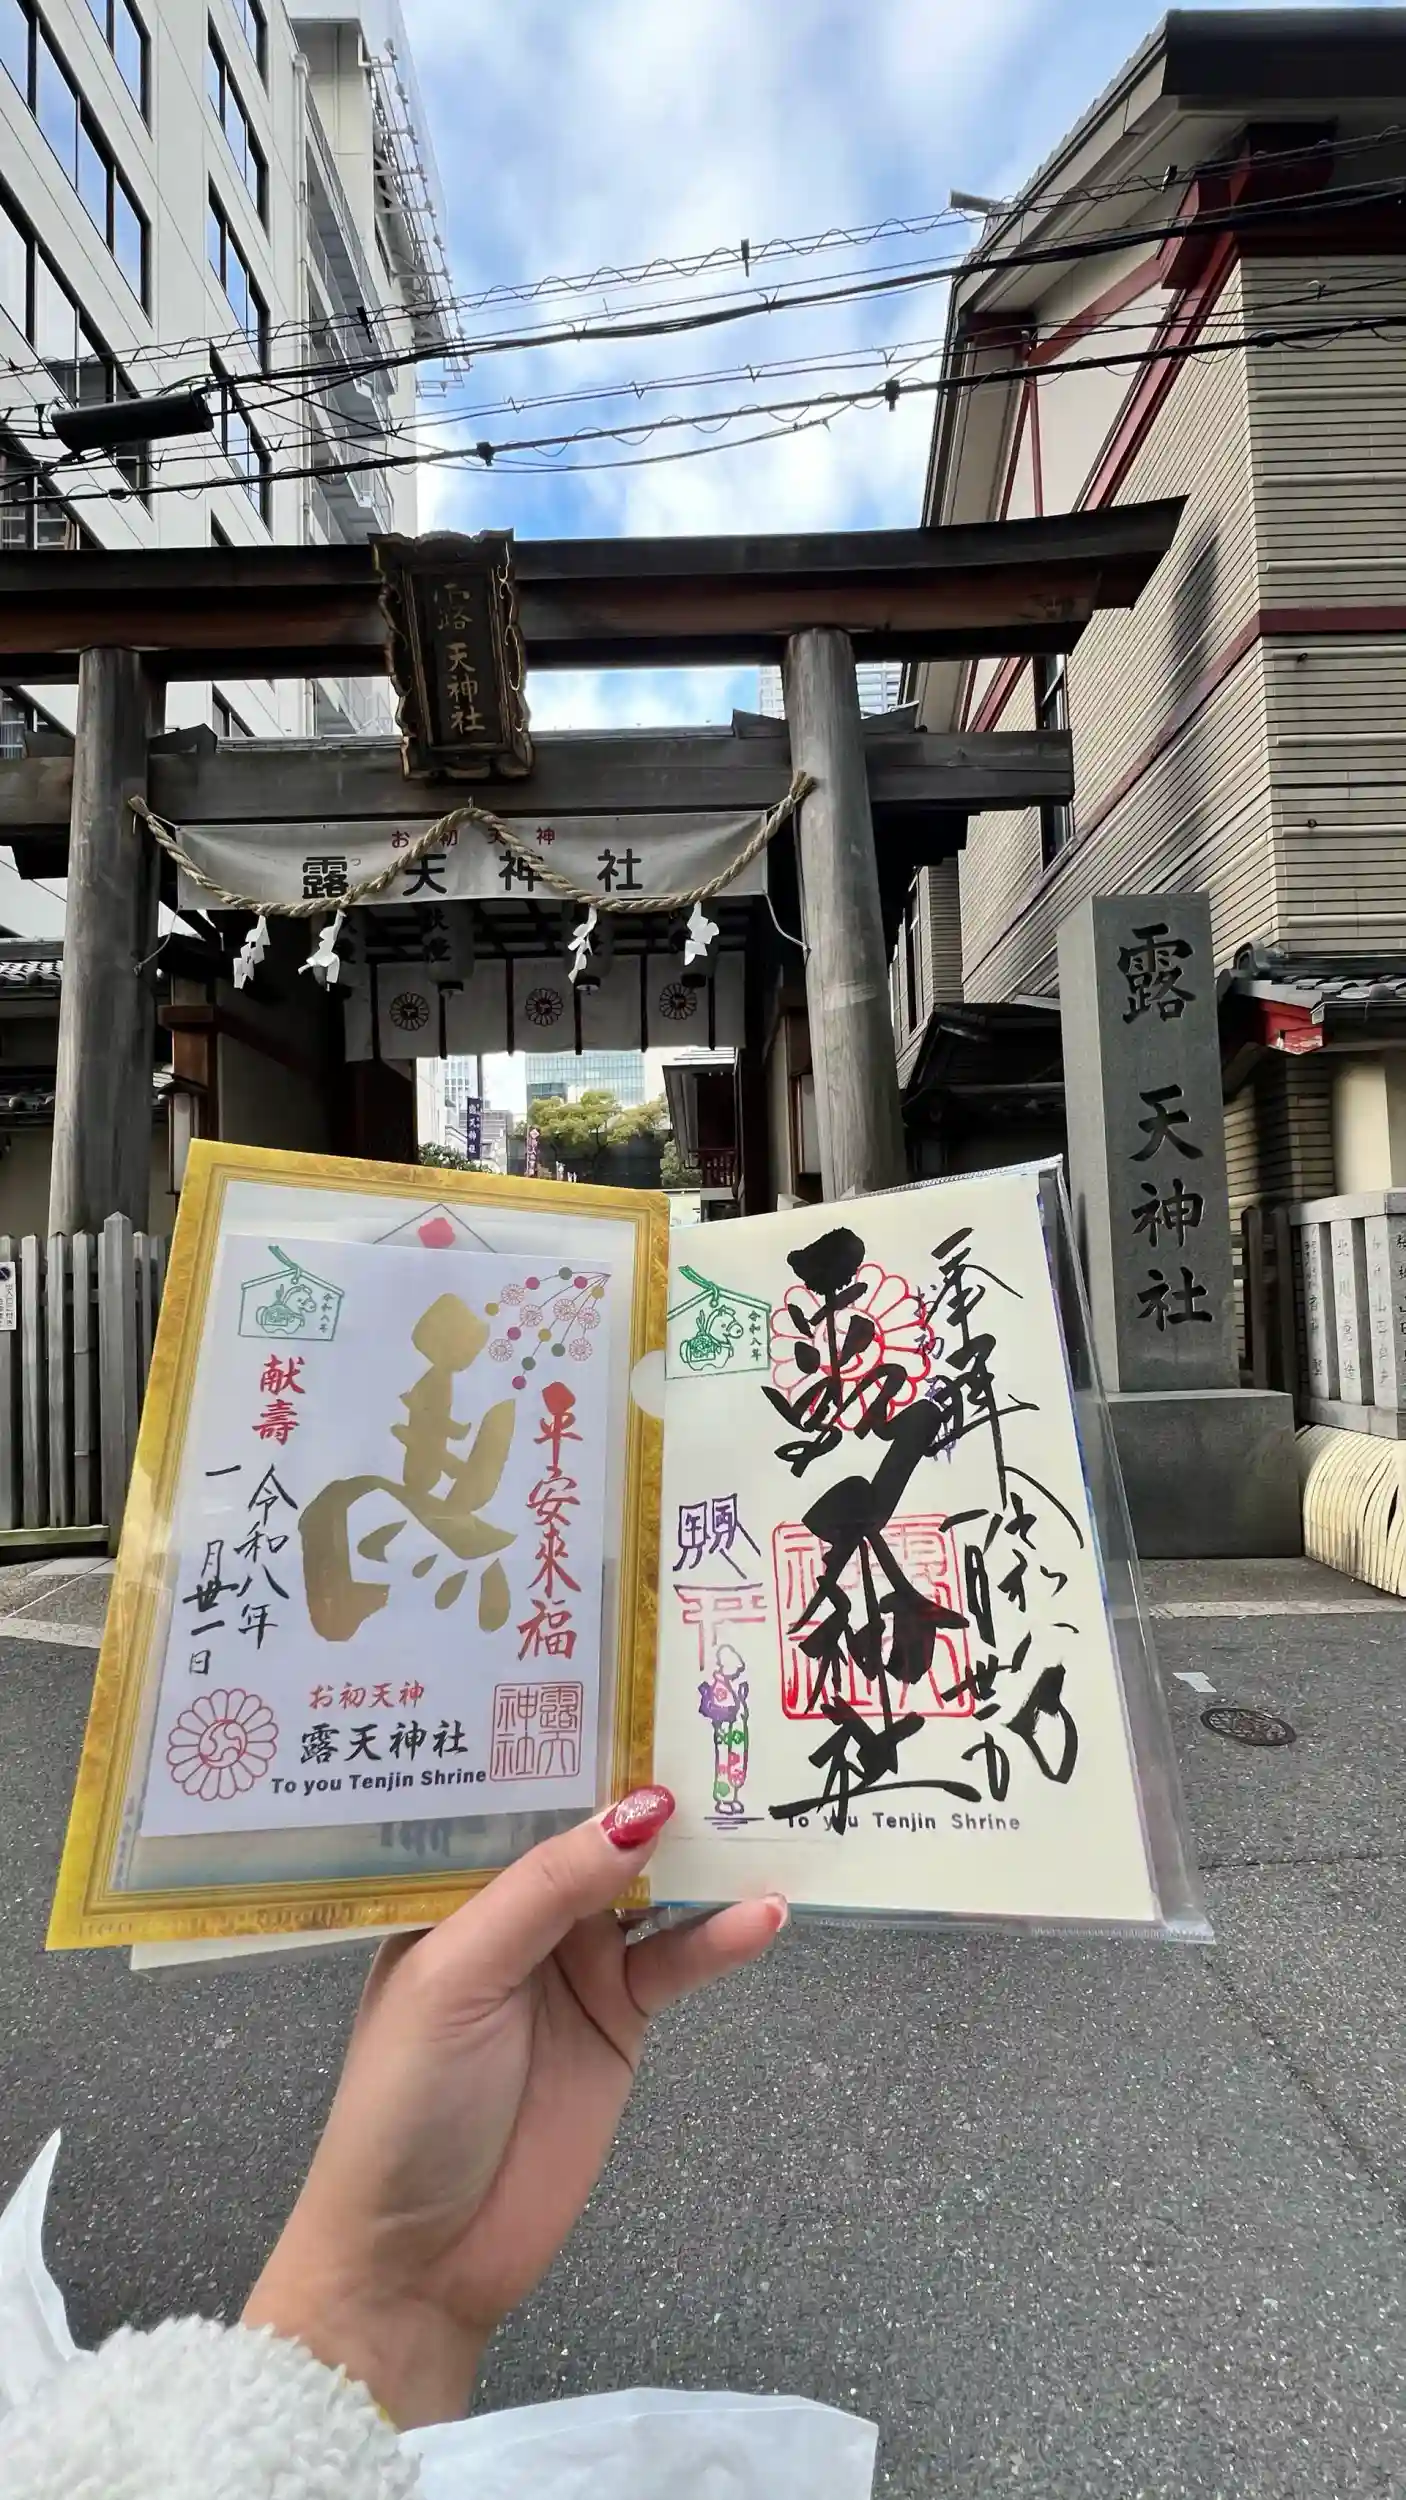 露天神社
お初天神
露天神社
つ
露天神社
令和八年
献壽
平安来福
令和八年
一月廿一日
お初天神
露天神社
To you Tenjin Shrine
露天神社
令和八年
奉拝
お初天神
露天神社
令和八年
一月廿一日
露天神社
To you Tenjin Shrine